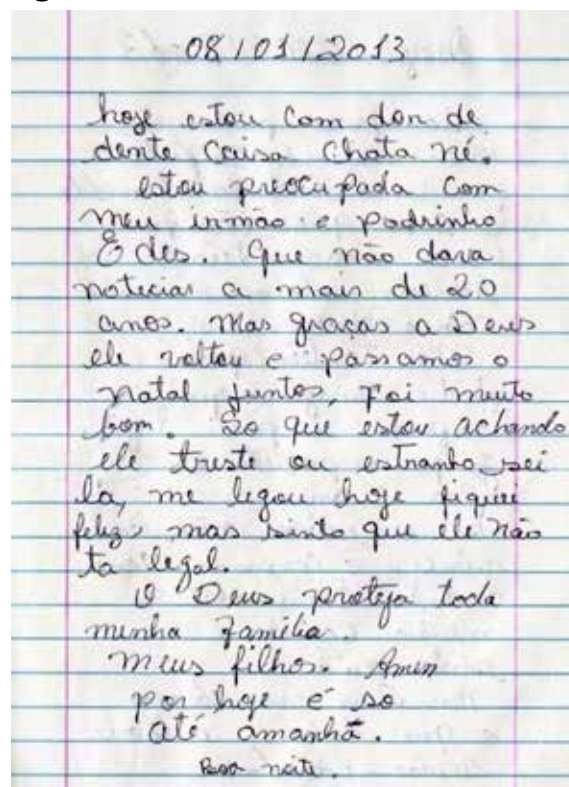 08/01/2013
hoje estou com dor de
dente Coisa Chata né.
estou preocupada com
meu irmão e padrinho
Edes. Que não dava
noteciar a mais de 20
anos. Mas graças a Deus
ele voltou e passamos o
natal juntos, Foi muito
bom. So que estou achando
ele triste ou estranho sei
la, me legou hoje fiquei
feliz, mas sinto que ele não
ta legal.
O Deus proteja toda
minha Família.
Meus filhos. Amen
por hoje é so
até amanhã.
Boa noite.